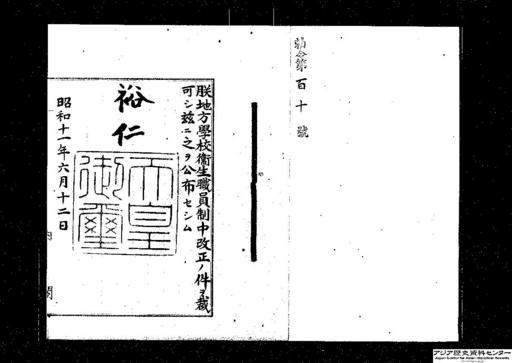 勅令第百十號
朕地方學校衞生職員制中改正ノ件ヲ裁
可シ茲ニ之ヲ公布セシム
裕仁
天皇御璽
昭和十一年六月十二日
内閣
アジア歴史資料センター
Japan Center for Asian Historical Records